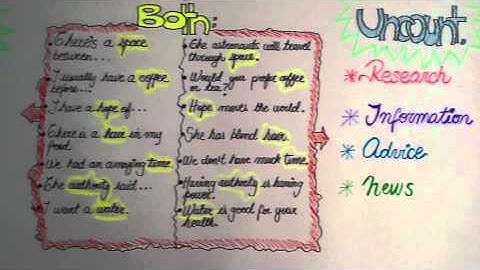 Both:
There's a space
between...
I usually have a coffee
before...
I have a hope of...
There is a hair in my
food.
We had an amazing time.
The authority said...
I want a water.
The astronauts will travel
through space.
Would you prefer coffee
or tea?
Hope moves the world.
She has blond hair.
We don't have much time.
Having authority is having
power.
Water is good for your
health.
Uncount.
Research
Information
Advice
News